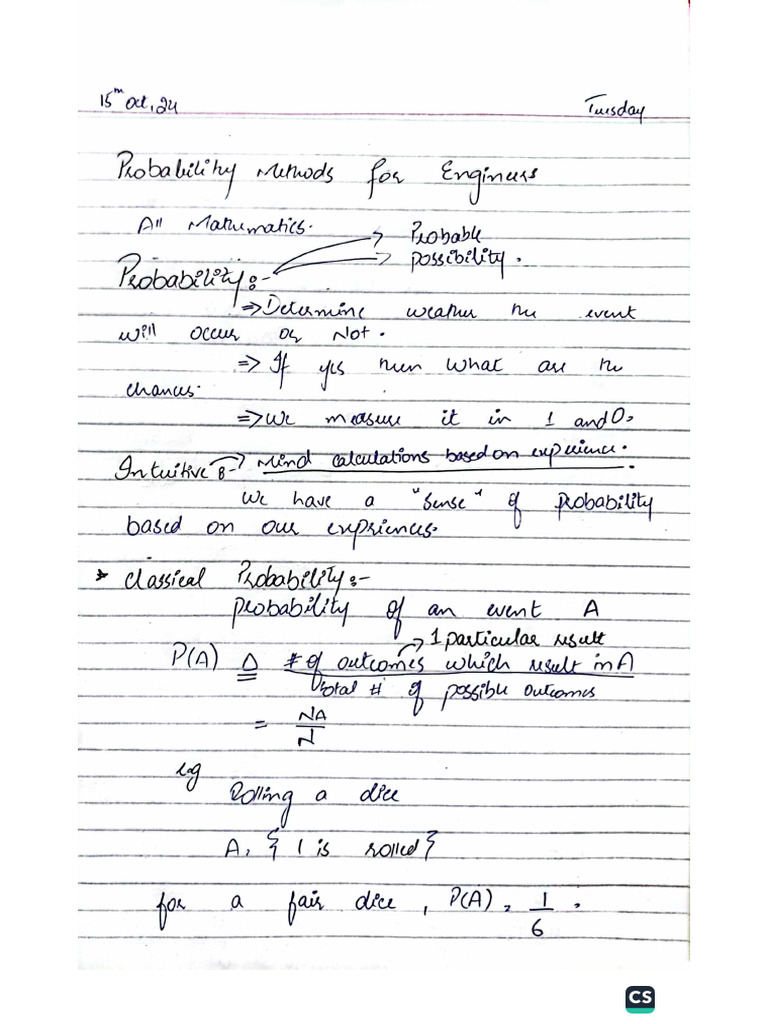 15th Oct, 24 Tuesday
Probability Methods for Engineers
All Mathematics.
→ Probable
→ possibility.
Probability:-
⇒ Determine weather the event
will occur or Not.
⇒ If yes then what are the
chances.
⇒ We measure it in 1 and 0.
Intuitive:- → Mind calculations based on experience.
We have a "sense" of probability
based on our expriences.
* Classical Probability:-
probability of an event A
→ 1 particular result
P(A) ≜ # of outcomes which result in A
Total # of possible outcomes
= NA
N
eg
Rolling a dice
A = { 1 is rolled }
for a fair dice, P(A) = 1
6
CS